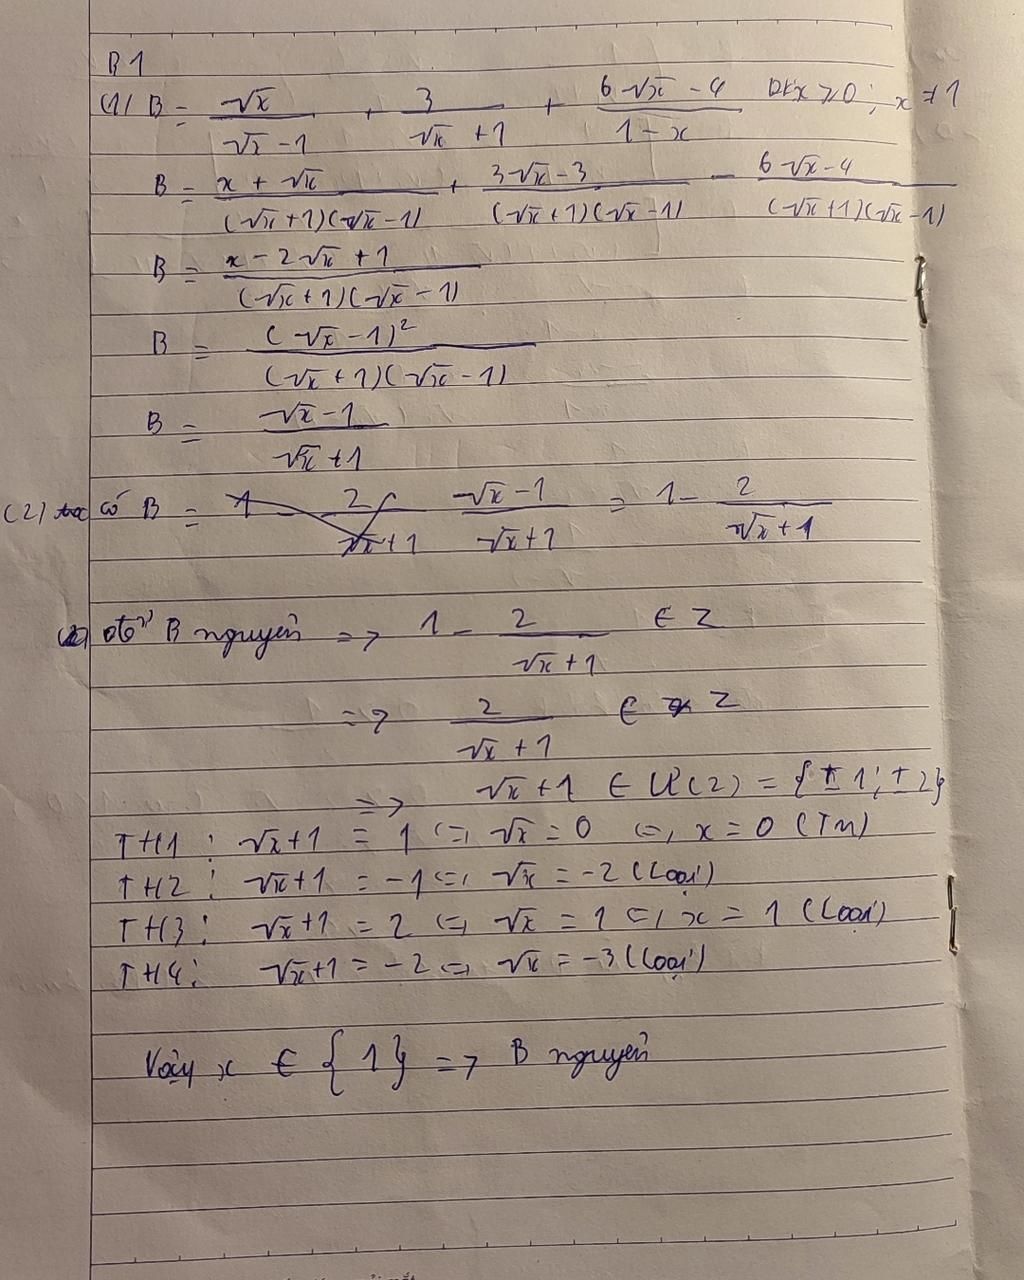 B1
(1) B = √x / (√x - 1) + 3 / (√x + 1) + (6√x - 4) / (1 - x) Đk x ≥ 0 ; x ≠ 1
B = (x + √x) / ((√x + 1)(√x - 1)) + (3√x - 3) / ((√x + 1)(√x - 1)) - (6√x - 4) / ((√x + 1)(√x - 1))
B = (x - 2√x + 1) / ((√x + 1)(√x - 1))
B = (√x - 1)² / ((√x + 1)(√x - 1))
B = (√x - 1) / (√x + 1)
(2) ta có B = (√x - 1) / (√x + 1) = 1 - 2 / (√x + 1)
để B nguyên => 1 - 2 / (√x + 1) ∈ Z
=> 2 / (√x + 1) ∈ Z
=> √x + 1 ∈ Ư(2) = {± 1; ± 2}
TH1 : √x + 1 = 1 <=> √x = 0 <=> x = 0 (TM)
TH2 : √x + 1 = -1 <=> √x = -2 (Loại)
TH3 : √x + 1 = 2 <=> √x = 1 <=> x = 1 (Loại)
TH4 : √x + 1 = -2 <=> √x = -3 (Loại)
Vậy x ∈ {1} => B nguyên